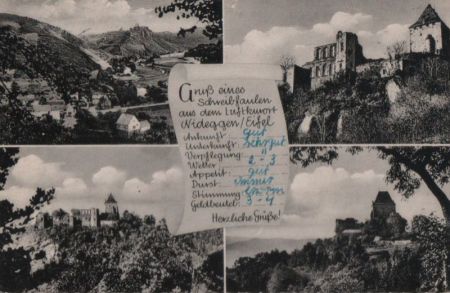 Gruß eines
Schreibfaulen
aus dem Luftkurort
Nideggen/Eifel
Ankunft: gut
Unterkunft: sehr gut
Verpflegung:
Wetter: 2-3
Appetit: gut
Durst: immer
Stimmung:
Geldbeutel: 3-4
Herzliche Grüße!